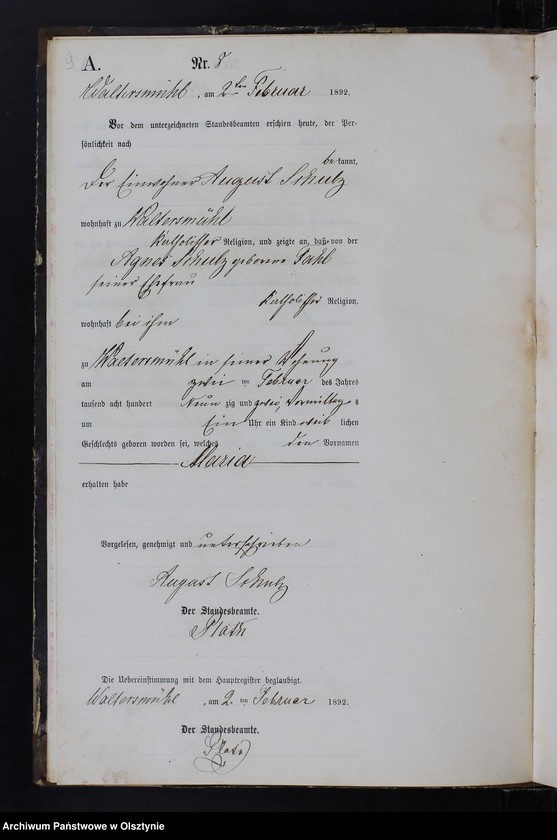 9
A.
Nr. 8
Waltersmühl, am 2ten Februar 1892.
Vor dem unterzeichneten Standesbeamten erschien heute, der Per-
sönlichkeit nach
be kannt,
Der Einwohner August Schulz
wohnhaft zu Waltersmühl
katholischer Religion, und zeigte an, daß von der
Agnes Schulz geborene
seiner Ehefrau
katholischer Religion,
wohnhaft bei ihm
zu Waltersmühl in seiner Wohnung
am zwei ten Februar des Jahres
tausend acht hundert neun zig und zwei, Vormittags
um Ein Uhr ein Kind weib lichen
Geschlechts geboren worden sei, welches den Vornamen
Maria
erhalten habe
Vorgelesen, genehmigt und unterschrieben
August Schulz
Der Standesbeamte.
Die Uebereinstimmung mit dem Hauptregister beglaubigt.
Waltersmühl, am 2. ten Februar 1892.
Der Standesbeamte.
Archiwum Państwowe w Olsztynie